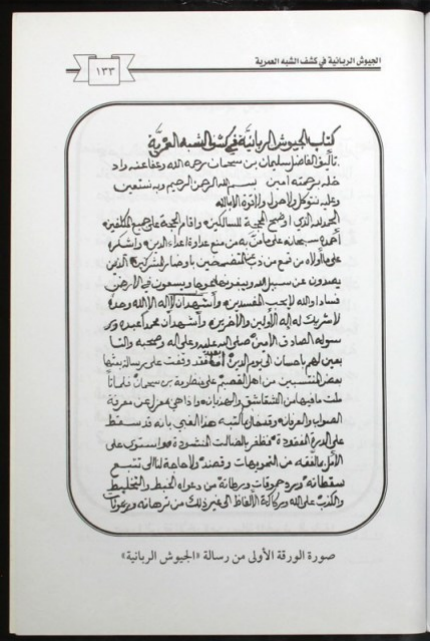 الجيوش الربانية في كشف الشبه العمرية
١٣٣
كتاب الجيوش الربانية في كشف الشبه العمرية
تأليف الفاضل سليمان بن سحمان رحمه الله وعفا عنه واد
خله برحمته امين بسم الله الرحمن الرحيم وبه نستعين
وعليه نتوكل ولا حول ولا قوة الا بالله
الحمد لله الذي اوضح المحجة للسالكين واقام الحجة على جميع المكلفين
أحمده سبحانه على ما من به من منح عداوة اعداء الدين واشكره
على ما اولاه من
يصدون عن سبيل الله ويبغونها عوجا ويسعون في الارض
فسادا والله لا يحب المفسدين وأشهد ان لا اله الا الله وحده
لا شريك له اله الأولين والآخرين وأشهد ان محمدا عبده ور
سوله الصادق الأمين صلى الله عليه وعلى اله وصحبه والتا
بعين لهم باحسان الى يوم الدين أما بعد فقد وقفت على رسالة بعثها
بعض المنتسبين من اهل القصيم على منظومة بن سحمان فلما تأ
ملت ما فيها من الشقاشق والهذيان واذا هي بمعزل عن معرفة
الصواب والعرفان وقد ظن مآلتبه هذا الغبي بانه قد سقط
على الدرة المفقودة وظفر بالضالة المنشودة واستوى على
الأمل بما لفقه من التمويهات وقصد ولا حاجة لنا الى تتبع
سقطاته وسرد حموقات ورطاته من دعواه الخبط والتخليط
والكذب على الله وركاكة الألفاظ الى غير ذلك من ترهاته ورعونات
صورة الورقة الأولى من رسالة «الجيوش الربانية»